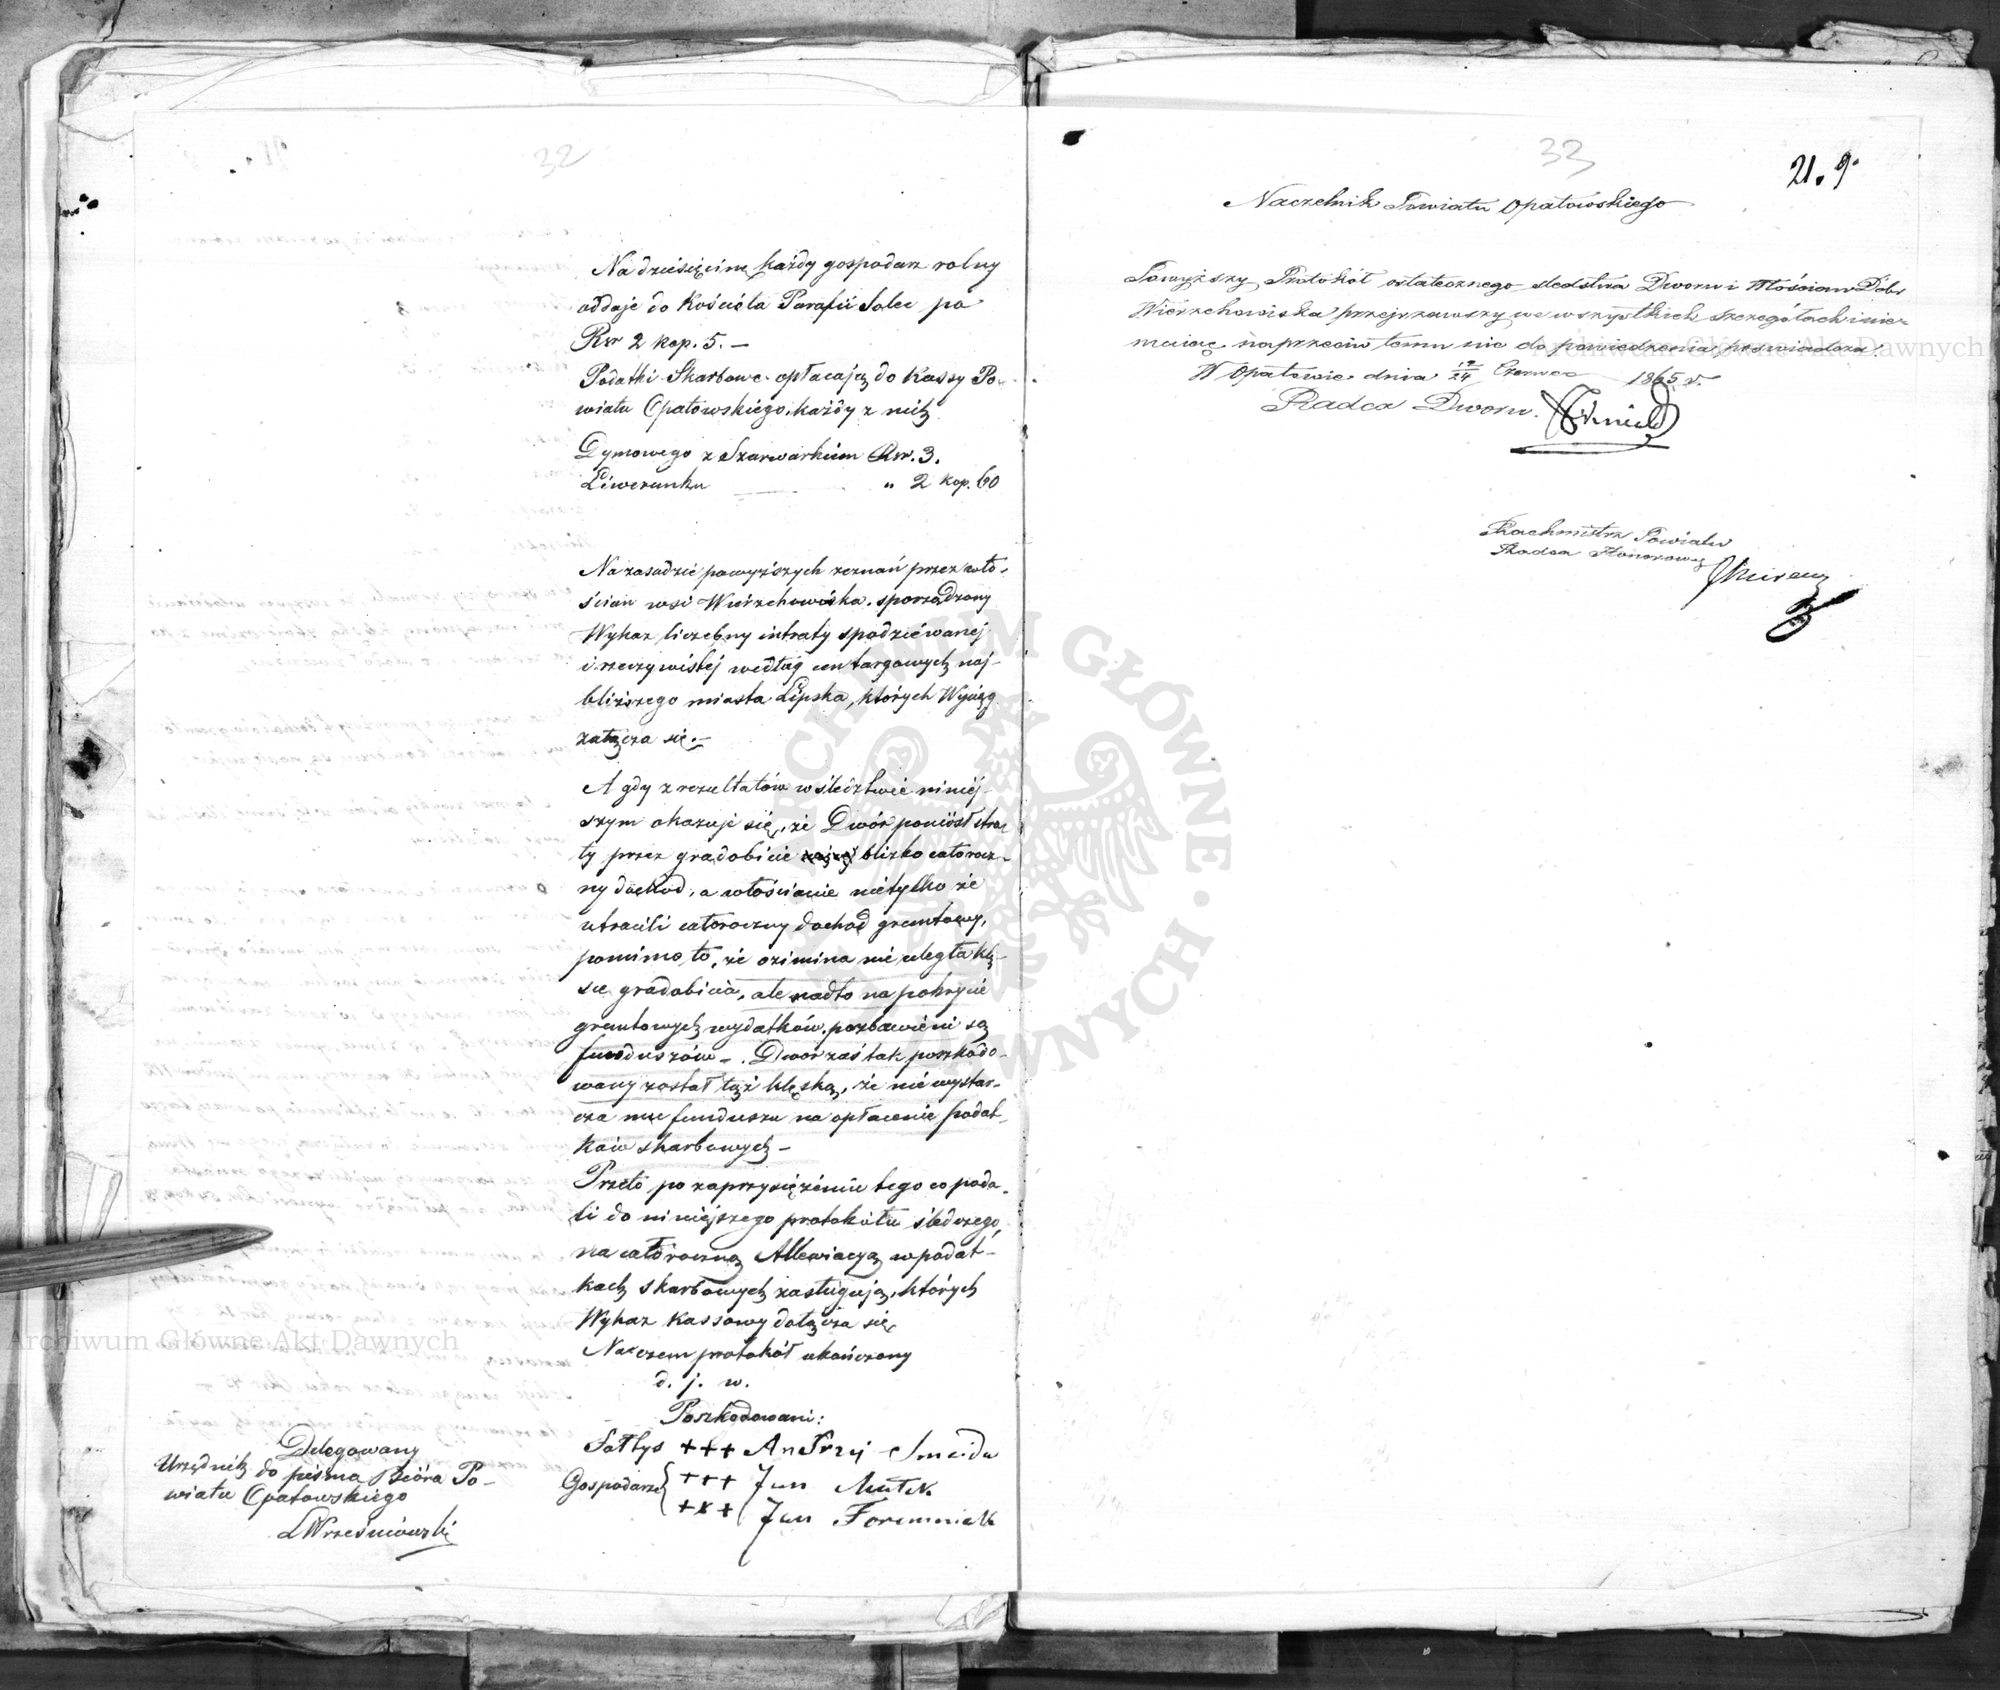 32
Na dziesięcinę każdy gospodarz rolny
oddaje do Kościoła Parafii Solec po
Rsr 2 kop. 5. —
Podatki Skarbowe opłacają do Kassy Po-
wiatu Opatowskiego, każdy z nich
Dymowego z Szarwarkiem Rsr. 3.
Liwerunku " 2 kop. 60
Na zasadzie powyższych zeznań przez wło-
ścian wsi Wierzchowiska sporządzony
Wykaz liczebny intraty spodziéwanej
i rzeczywistej według cen targowych naj-
bliższego miasta Lipska, których Wyciąg
załącza się. —
A gdy z rezultatów w śledztwie niniej-
szym okazuje się, że Dwór poniósł stra-
ty przez gradobicie blizko całorocz-
ny dochod, a włościanie nietylko że
utracili całoroczny dochod gruntowy,
pomimo to, że ozimina nie uległa klę-
sce gradobicia, ale nadto na pokrycie
gruntowych wydatków, pozbawieni są
funduszów —. Dwór zaś tak poszkodo-
wany został tąż klęską, że nie wystar-
cza mu funduszu na opłacenie podat-
ków skarbowych —
Przeto po zaprzysiężeniu tego co poda-
li do niniejszego protokółu śledczego,
na całoroczną Allewiacyą w podat-
kach skarbowych zasługują, których
Wykaz Kassowy dołącza się
Na czem protokół ukończony
d. j. w.
Poszkodowani:
Sołtys +++ Andrzej
Gospodarze +++ Jan
+++ Jan Foremniak
Delegowany
Urzędnik do pisma Bióra Po-
wiatu Opatowskiego
LWrześniowski
33
21. 9
Naczelnik Powiatu Opatowskiego
Powyższy Protokół ostatecznego śledstwa Dworu i Włościan Dóbr
Wierzchowiska przejrzawszy we wszystkich szczegółach i nie-
mając naprzeciw temu nic do powiedzenia poświadcza.
W Opatowie dnia 12/24 Czerwca 1865 r.
Radca Dworu.
Rachmistrz Powiatu
Radca Honorowy
Archiwum Główne Akt Dawnych
Archiwum Główne Akt Dawnych
ARCHIWUM GŁÓWNE AKT DAWNYCH